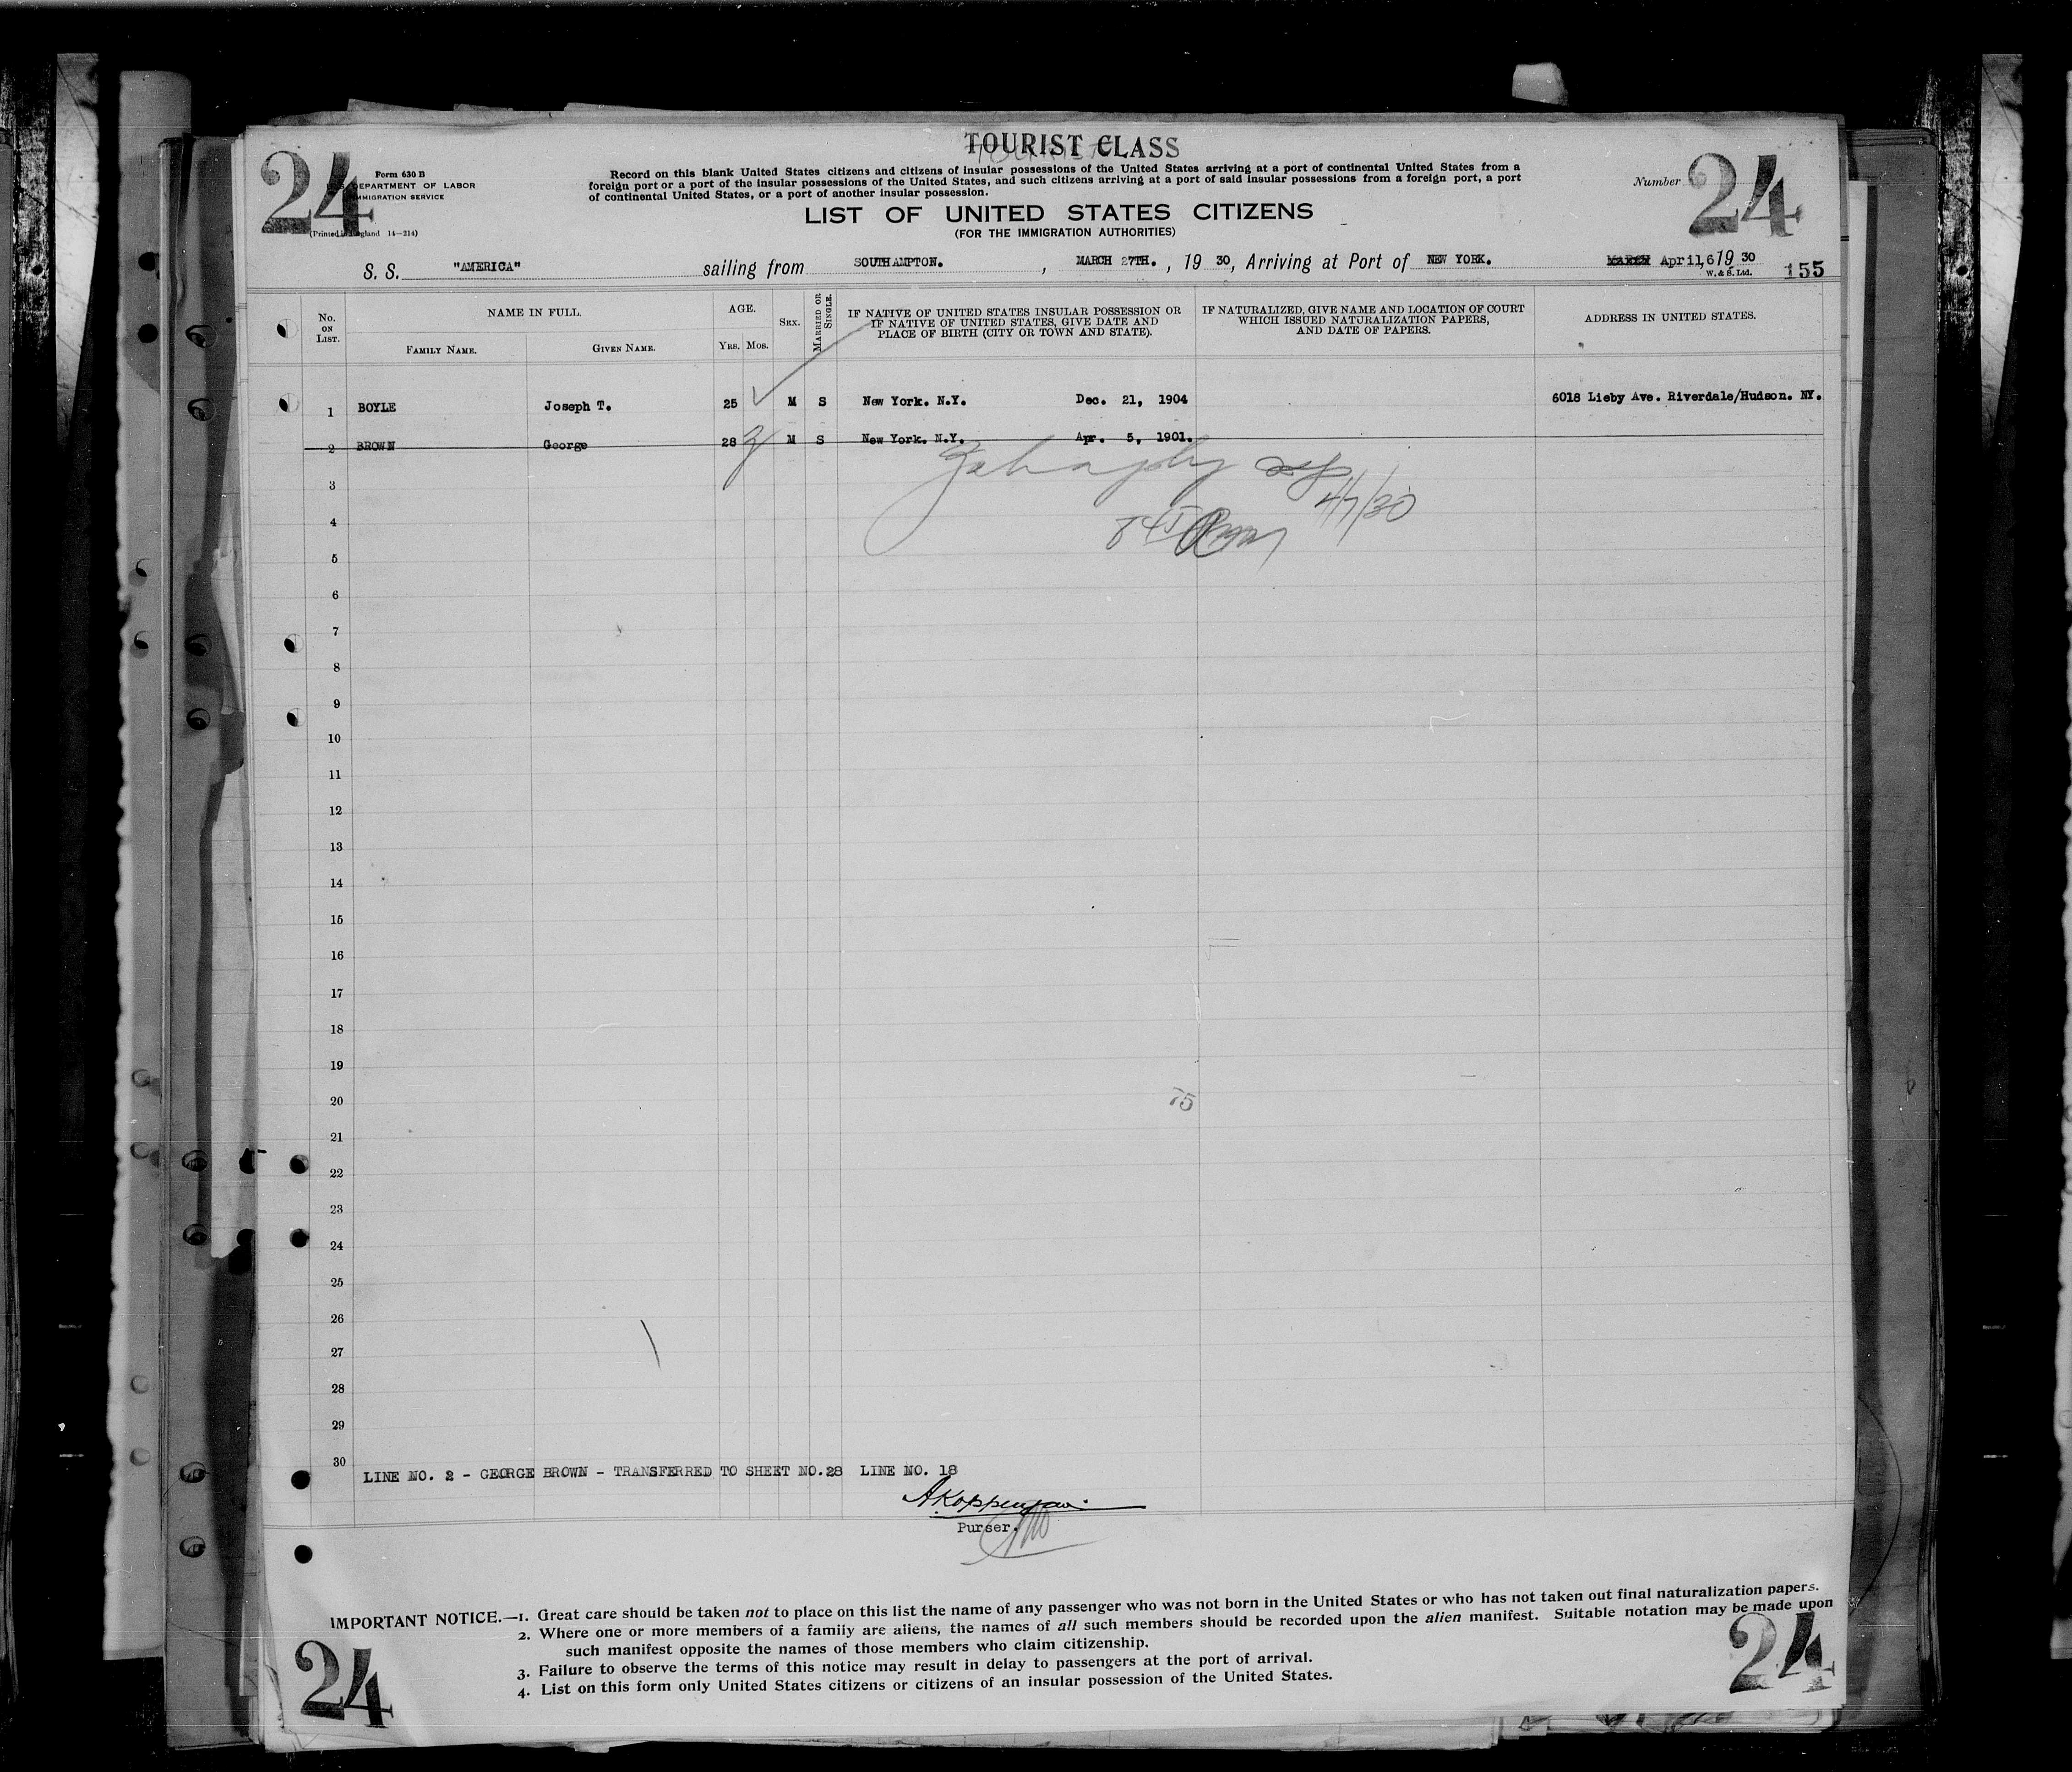 TOURIST CLASS
24
Form 630 B
DEPARTMENT OF LABOR
IMMIGRATION SERVICE
(Printed in England 14-214)
Record on this blank United States citizens and citizens of insular possessions of the United States arriving at a port of continental United States from a
foreign port or a port of the insular possessions of the United States, and such citizens arriving at a port of said insular possessions from a foreign port, a port
of continental United States, or a port of another insular possession.
Number
24
LIST OF UNITED STATES CITIZENS
(FOR THE IMMIGRATION AUTHORITIES)
S. S. "AMERICA" sailing from SOUTHAMPTON. , MARCH 27TH. , 19 30, Arriving at Port of NEW YORK. MARCH April, 6 19 30
W. & S. Ltd.
155
No. ON LIST.
NAME IN FULL.
FAMILY NAME.
GIVEN NAME.
AGE.
YRS. MOS.
SEX.
MARRIED OR SINGLE.
IF NATIVE OF UNITED STATES INSULAR POSSESSION OR
IF NATIVE OF UNITED STATES, GIVE DATE AND
PLACE OF BIRTH (CITY OR TOWN AND STATE).
IF NATURALIZED, GIVE NAME AND LOCATION OF COURT
WHICH ISSUED NATURALIZATION PAPERS,
AND DATE OF PAPERS.
ADDRESS IN UNITED STATES.
1 BOYLE Joseph T. 25 M S New York. N.Y. Dec. 21, 1904 6018 Lieby Ave. Riverdale/Hudson. NY.
2 BROWN George 28 M S New York. N.Y. Apr. 5, 1901.
3
4/7/30
4
5
6
7
8
9
10
11
12
13
14
15
16
17
18
19
20
75
21
22
23
24
25
26
27
28
29
30
LINE NO. 2 - GEORGE BROWN - TRANSFERRED TO SHEET NO.28 LINE NO. 18
Purser.
IMPORTANT NOTICE.—1. Great care should be taken not to place on this list the name of any passenger who was not born in the United States or who has not taken out final naturalization papers.
2. Where one or more members of a family are aliens, the names of all such members should be recorded upon the alien manifest. Suitable notation may be made upon
such manifest opposite the names of those members who claim citizenship.
3. Failure to observe the terms of this notice may result in delay to passengers at the port of arrival.
4. List on this form only United States citizens or citizens of an insular possession of the United States.
24
24